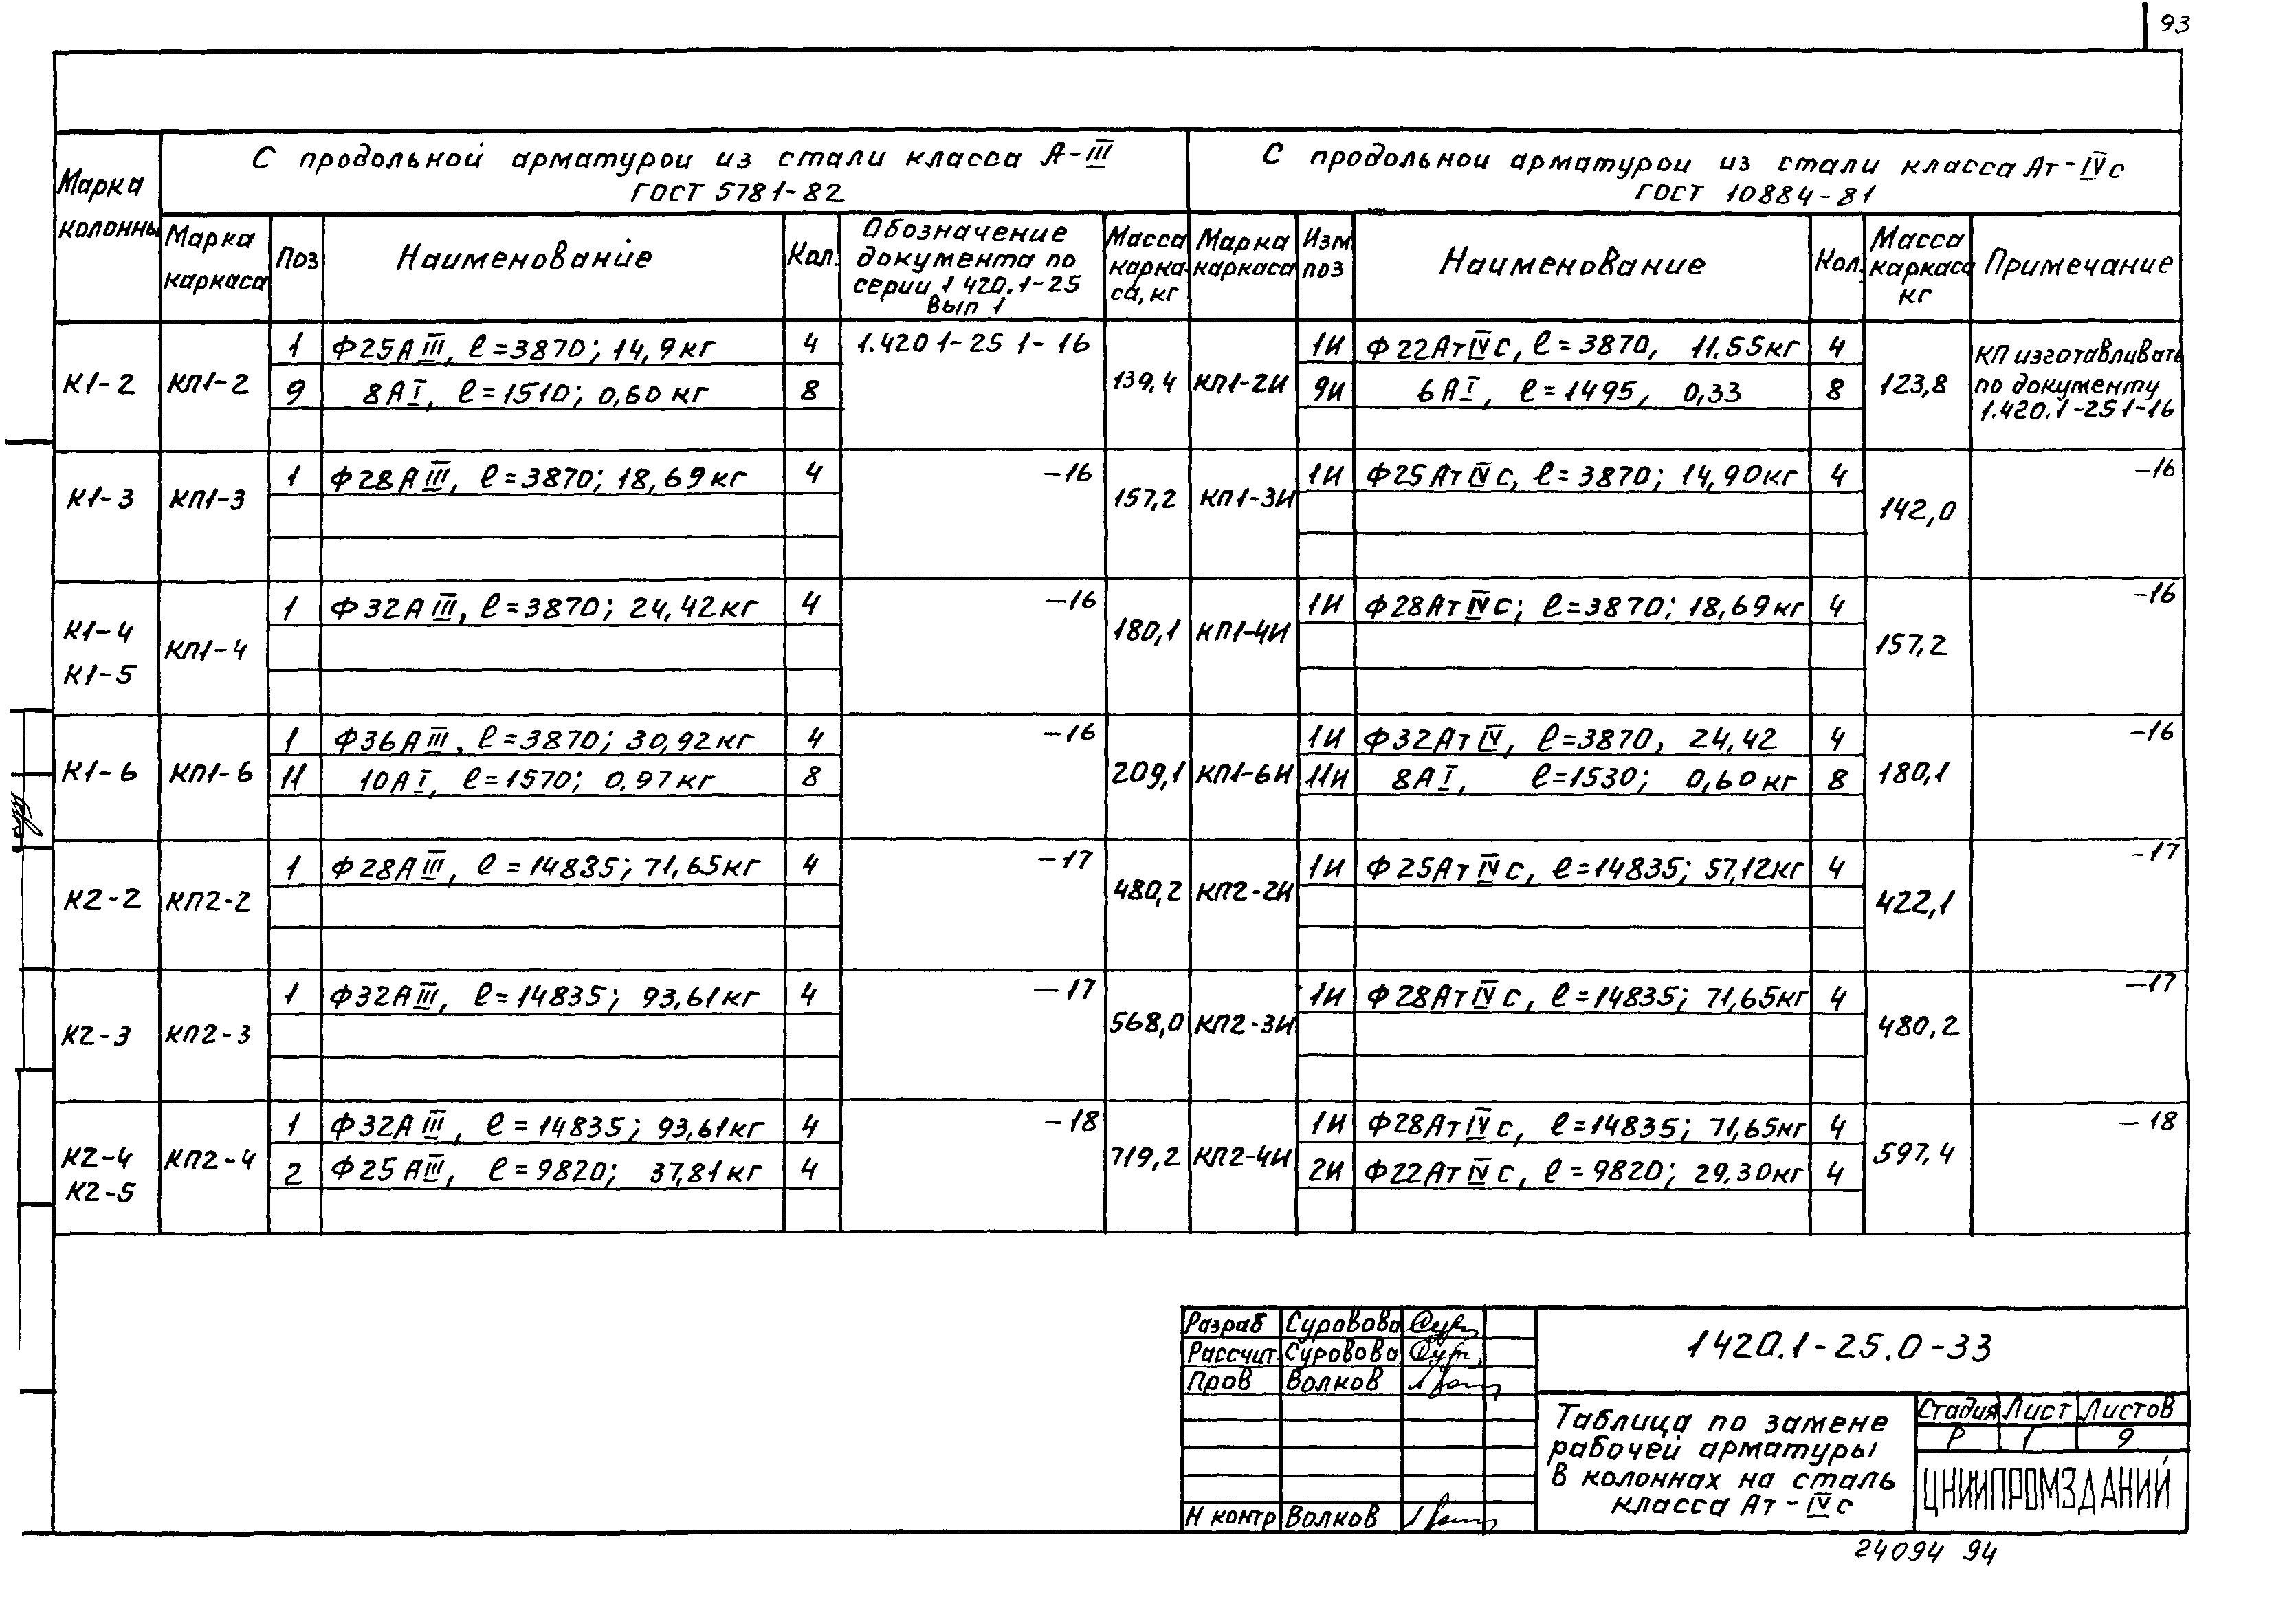 93
С продольной арматурой из стали класса А-III
ГОСТ 5781-82
С продольной арматурой из стали класса Ат-IVс
ГОСТ 10884-81
Марка
колонны
Марка
каркаса
Поз
Наименование
Кол.
Обозначение
документа по
серии 1 420.1-25
Вып 1
Масса
карка-
са, кг
Марка
каркаса
Изм
поз
Наименование
Кол.
Масса
каркаса
кг
Примечание
К1-2 КП1-2 139,4 КП1-2И 123,8
1 Ф25АIII, ℓ=3870; 14,9кг 4 1.420 1-25 1-16 1И Ф22АтIVС, ℓ=3870, 11.55кг 4
9 8АI, ℓ=1510; 0,60кг 8 9И 6АI, ℓ=1495, 0,33 8
КП изготавливать
по документу
1.420.1-25 1-16
К1-3 КП1-3 157,2 КП1-3И 142,0
1 Ф28АIII, ℓ=3870; 18,69кг 4 -16 1И Ф25АтIVС, ℓ=3870; 14,90кг 4 -16
К1-4
К1-5
КП1-4 180,1 КП1-4И 157,2
1 Ф32АIII, ℓ=3870; 24,42кг 4 -16 1И Ф28АтIVС; ℓ=3870; 18,69кг 4 -16
К1-6 КП1-6 209,1 КП1-6И 180,1
1 Ф36АIII, ℓ=3870; 30,92кг 4 -16 1И Ф32АтIV, ℓ=3870, 24,42 4 -16
11 10АI, ℓ=1570; 0,97кг 8 11И 8АI, ℓ=1530; 0,60кг 8
К2-2 КП2-2 480,2 КП2-2И 422,1
1 Ф28АIII, ℓ=14835; 71,65кг 4 -17 1И Ф25АтIVС, ℓ=14835; 57,12кг 4 -17
К2-3 КП2-3 568,0 КП2-3И 480,2
1 Ф32АIII, ℓ=14835; 93,61кг 4 -17 1И Ф28АтIVС, ℓ=14835; 71,65кг 4 -17
К2-4
К2-5
КП2-4 719,2 КП2-4И 597,4
1 Ф32АIII, ℓ=14835; 93,61кг 4 -18 1И Ф28АтIVС, ℓ=14835; 71,65кг 4 -18
2 Ф25АIII, ℓ=9820; 37,81кг 4 2И Ф22АтIVС, ℓ=9820; 29,30кг 4
Разраб Суровова
Рассчит. Суровова
Пров Волков
Н контр Волков
1420.1-25.0-33
Таблица по замене
рабочей арматуры
в колоннах на сталь
класса Ат-IVс
Стадия Лист Листов
Р 1 9
ЦНИИПРОМЗДАНИЙ
24094 94